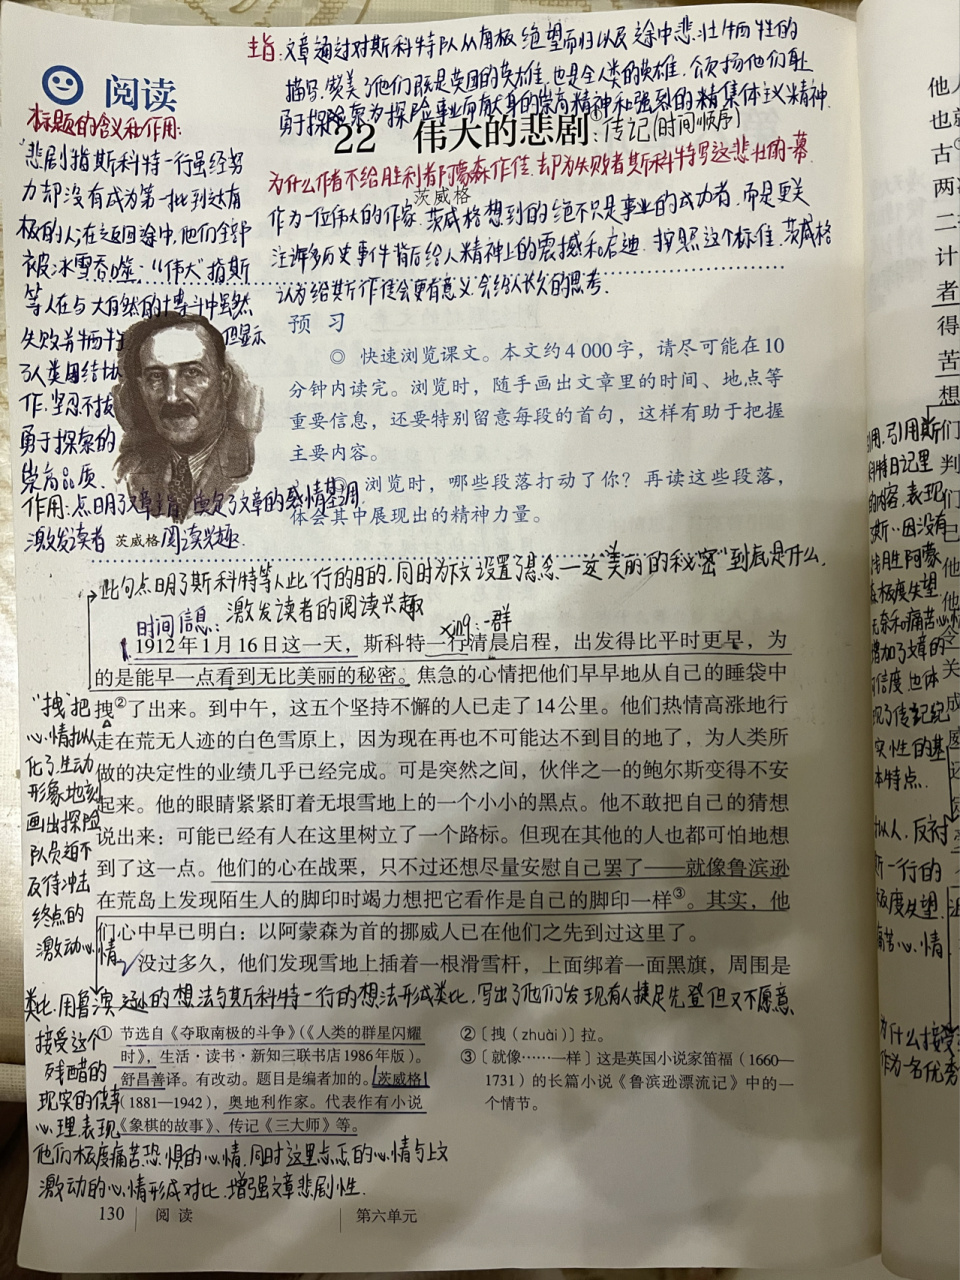 主旨:文章通过对斯科特队从南极绝望而归以及途中悲壮牺牲的
描写,赞美了他们既是英国的英雄,也是全人类的英雄,颂扬他们勇
于探险为探险事业而献身的崇高精神和强烈的集体主义精神.
阅读
22 伟大的悲剧①:传记(时间顺序)
茨威格
标题的含义和作用:
悲剧指斯科特一行虽经努
力却没有成为第一批到达南
极的人;在返回途中,他们全部
被冰雪吞噬;“伟大”指斯
等人在与大自然的搏斗中虽然
失败并牺牲 但显示
了人类团结协
作,坚忍不拔
勇于探索的
崇高品质.
作用:点明了文章主旨,奠定了文章的感情基调
激发读者阅读兴趣.
茨威格
为什么作者不给胜利者阿蒙森作传,却为失败者斯科特写这悲壮的一幕.
作为一位伟大的作家,茨威格想到的绝不只是事业的成功者,而是更关
注许多历史事件背后给人精神上的震撼和启迪.按照这个标准,茨威格
认为给其作传会更有意义,会给人长久的思考.
预 习
◎ 快速浏览课文。本文约4 000字,请尽可能在10
分钟内读完。浏览时,随手画出文章里的时间、地点等
重要信息,还要特别留意每段的首句,这样有助于把握
主要内容。
◎ 浏览时,哪些段落打动了你?再读这些段落,
体会其中展现出的精神力量。
此句点明了斯科特等人此行的目的,同时为下文设置了悬念,一这“美丽的秘密”到底是什么,
激发读者的阅读兴趣
时间信息:
xíng:一群
1.1912年1月16日这一天,斯科特一行清晨启程,出发得比平时更早,为
的是能早一点看到无比美丽的秘密。焦急的心情把他们早早地从自己的睡袋中
拽②了出来。到中午,这五个坚持不懈的人已走了14公里。他们热情高涨地行
走在荒无人迹的白色雪原上,因为现在再也不可能达不到目的地了,为人类所
做的决定性的业绩几乎已经完成。可是突然之间,伙伴之一的鲍尔斯变得不安
起来。他的眼睛紧紧盯着无垠雪地上的一个小小的黑点。他不敢把自己的猜想
说出来:可能已经有人在这里树立了一个路标。但现在其他的人也都可怕地想
到了这一点。他们的心在战栗,只不过还想尽量安慰自己罢了——就像鲁滨逊
在荒岛上发现陌生人的脚印时竭力想把它看作是自己的脚印一样③。其实,他
们心中早已明白:以阿蒙森为首的挪威人已在他们之先到过这里了。
没过多久,他们发现雪地上插着一根滑雪杆,上面绑着一面黑旗,周围是
“拽”把
心情拟人
化了,生动
形象地刻
画出探险
队员迫不
及待冲击
终点的
激动心情
类比,用鲁滨逊的想法与斯科特一行的想法形成类比,写出了他们发现有人捷足先登但又不愿意
接受这个
残酷的
现实的侥幸
心理,表现
他们极度痛苦恐惧的心情,同时这里忐忑的心情与上文
激动的心情形成对比,增强文章悲剧性.
① 节选自《夺取南极的斗争》(《人类的群星闪耀
时》,生活·读书·新知三联书店1986年版)。
舒昌善译。有改动。题目是编者加的。茨威格
(1881—1942),奥地利作家。代表作有小说
《象棋的故事》、传记《三大师》等。
②〔拽(zhuài)〕拉。
③〔就像……一样〕这是英国小说家笛福(1660—
1731)的长篇小说《鲁滨逊漂流记》中的一
个情节。
130 阅 读 第六单元
他人
也就
古
两
二
计
者
得
苦
想
引用,引用斯
科特日记里
的内容,表现
没有
战胜阿蒙
极度失望
无奈和痛苦心
增加了文章的
信度,也体
现了传记纪
实性的基
本特点.
拟人,反衬
一行的
极度失望
痛苦心情
为什么接受
作为一名优秀